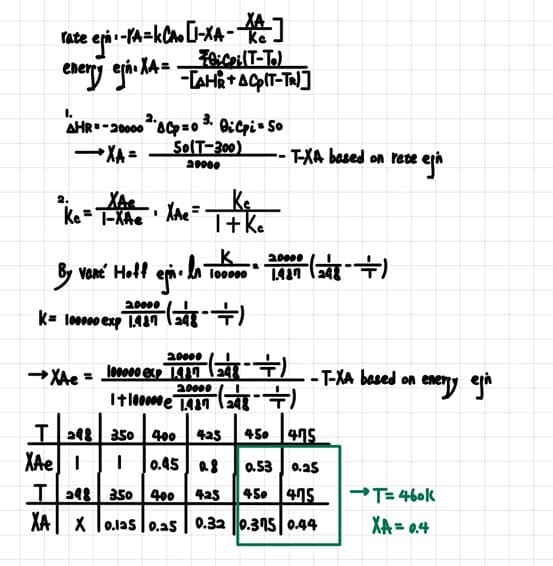 rate eq'n: -rA = kCAo [1-XA - XA/Kc]
energy eq'n: XA = ΣθiCpi(T-To) / -[ΔH°R + ΔCp(T-TR)]
1. ΔHR = -20000 2. ΔCp=0 3. θiCpi = 50
→ XA = 50(T-300) / 20000 - T-XA based on rate eq'n
2. Kc = XAe / 1-XAe , XAe = Kc / 1+Kc
By Vant' Hoff eq'n. ln K/100000 = 20000/1.987 (1/298 - 1/T)
K = 100000 exp 20000/1.987 (1/298 - 1/T)
→ XAe = 100000 exp 20000/1.987 (1/298 - 1/T) / 1+100000e 20000/1.987 (1/298 - 1/T) - T-XA based on energy eq'n
T 298 350 400 425 450 475
XAe 1 1 0.95 0.8 0.53 0.25
T 298 350 400 425 450 475 → T= 460K
XA X 0.125 0.25 0.32 0.375 0.44 XA = 0.4